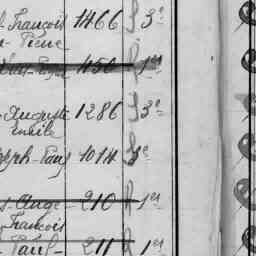 François 1466 3e
Pierre
450 1er
Auguste 1286 3e
Emile
Joseph-Paul 1014 3e
Ange 210 1er
François
Paul 211 1er